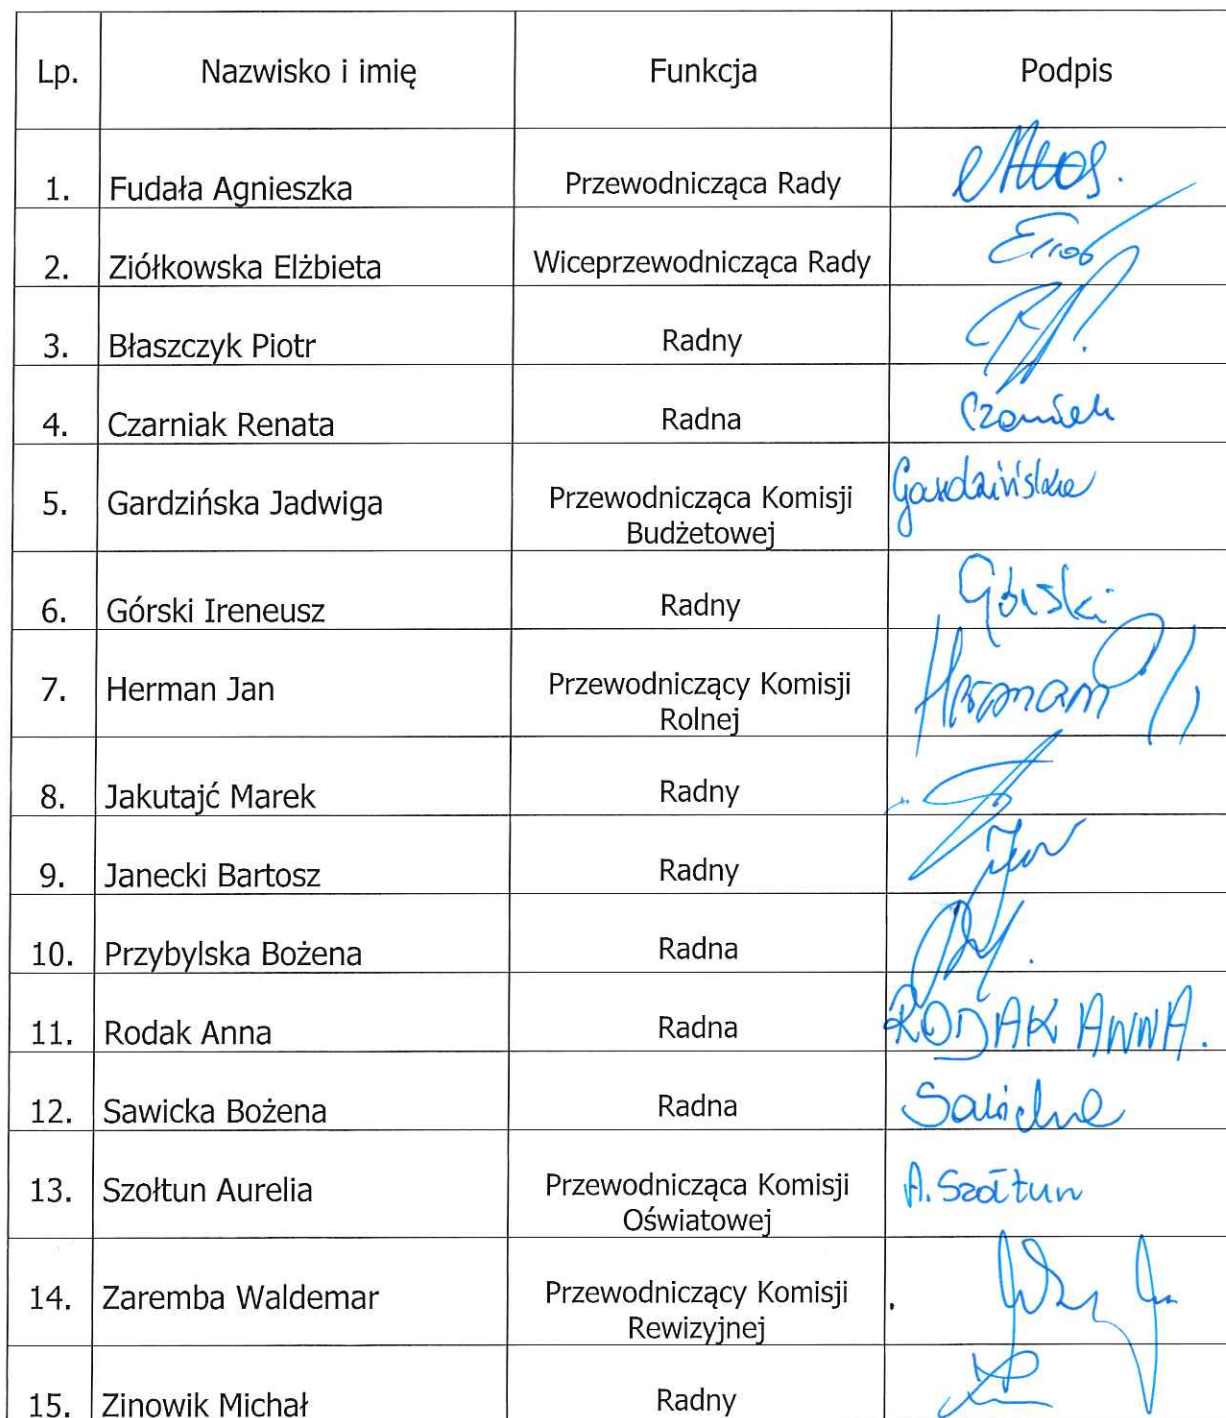 Lp. Nazwisko i imię Funkcja Podpis
1. Fudała Agnieszka Przewodnicząca Rady
2. Ziółkowska Elżbieta Wiceprzewodnicząca Rady
3. Błaszczyk Piotr Radny
4. Czarniak Renata Radna Czarniak
5. Gardzińska Jadwiga Przewodnicząca Komisji Gardzińska
Budżetowej
6. Górski Ireneusz Radny Górski
7. Herman Jan Przewodniczący Komisji Herman
Rolnej
8. Jakutajć Marek Radny
9. Janecki Bartosz Radny
10. Przybylska Bożena Radna
11. Rodak Anna Radna RODAK ANNA.
12. Sawicka Bożena Radna Sawicka
13. Szołtun Aurelia Przewodnicząca Komisji A. Szołtun
Oświatowej
14. Zaremba Waldemar Przewodniczący Komisji
Rewizyjnej
15. Zinowik Michał Radny